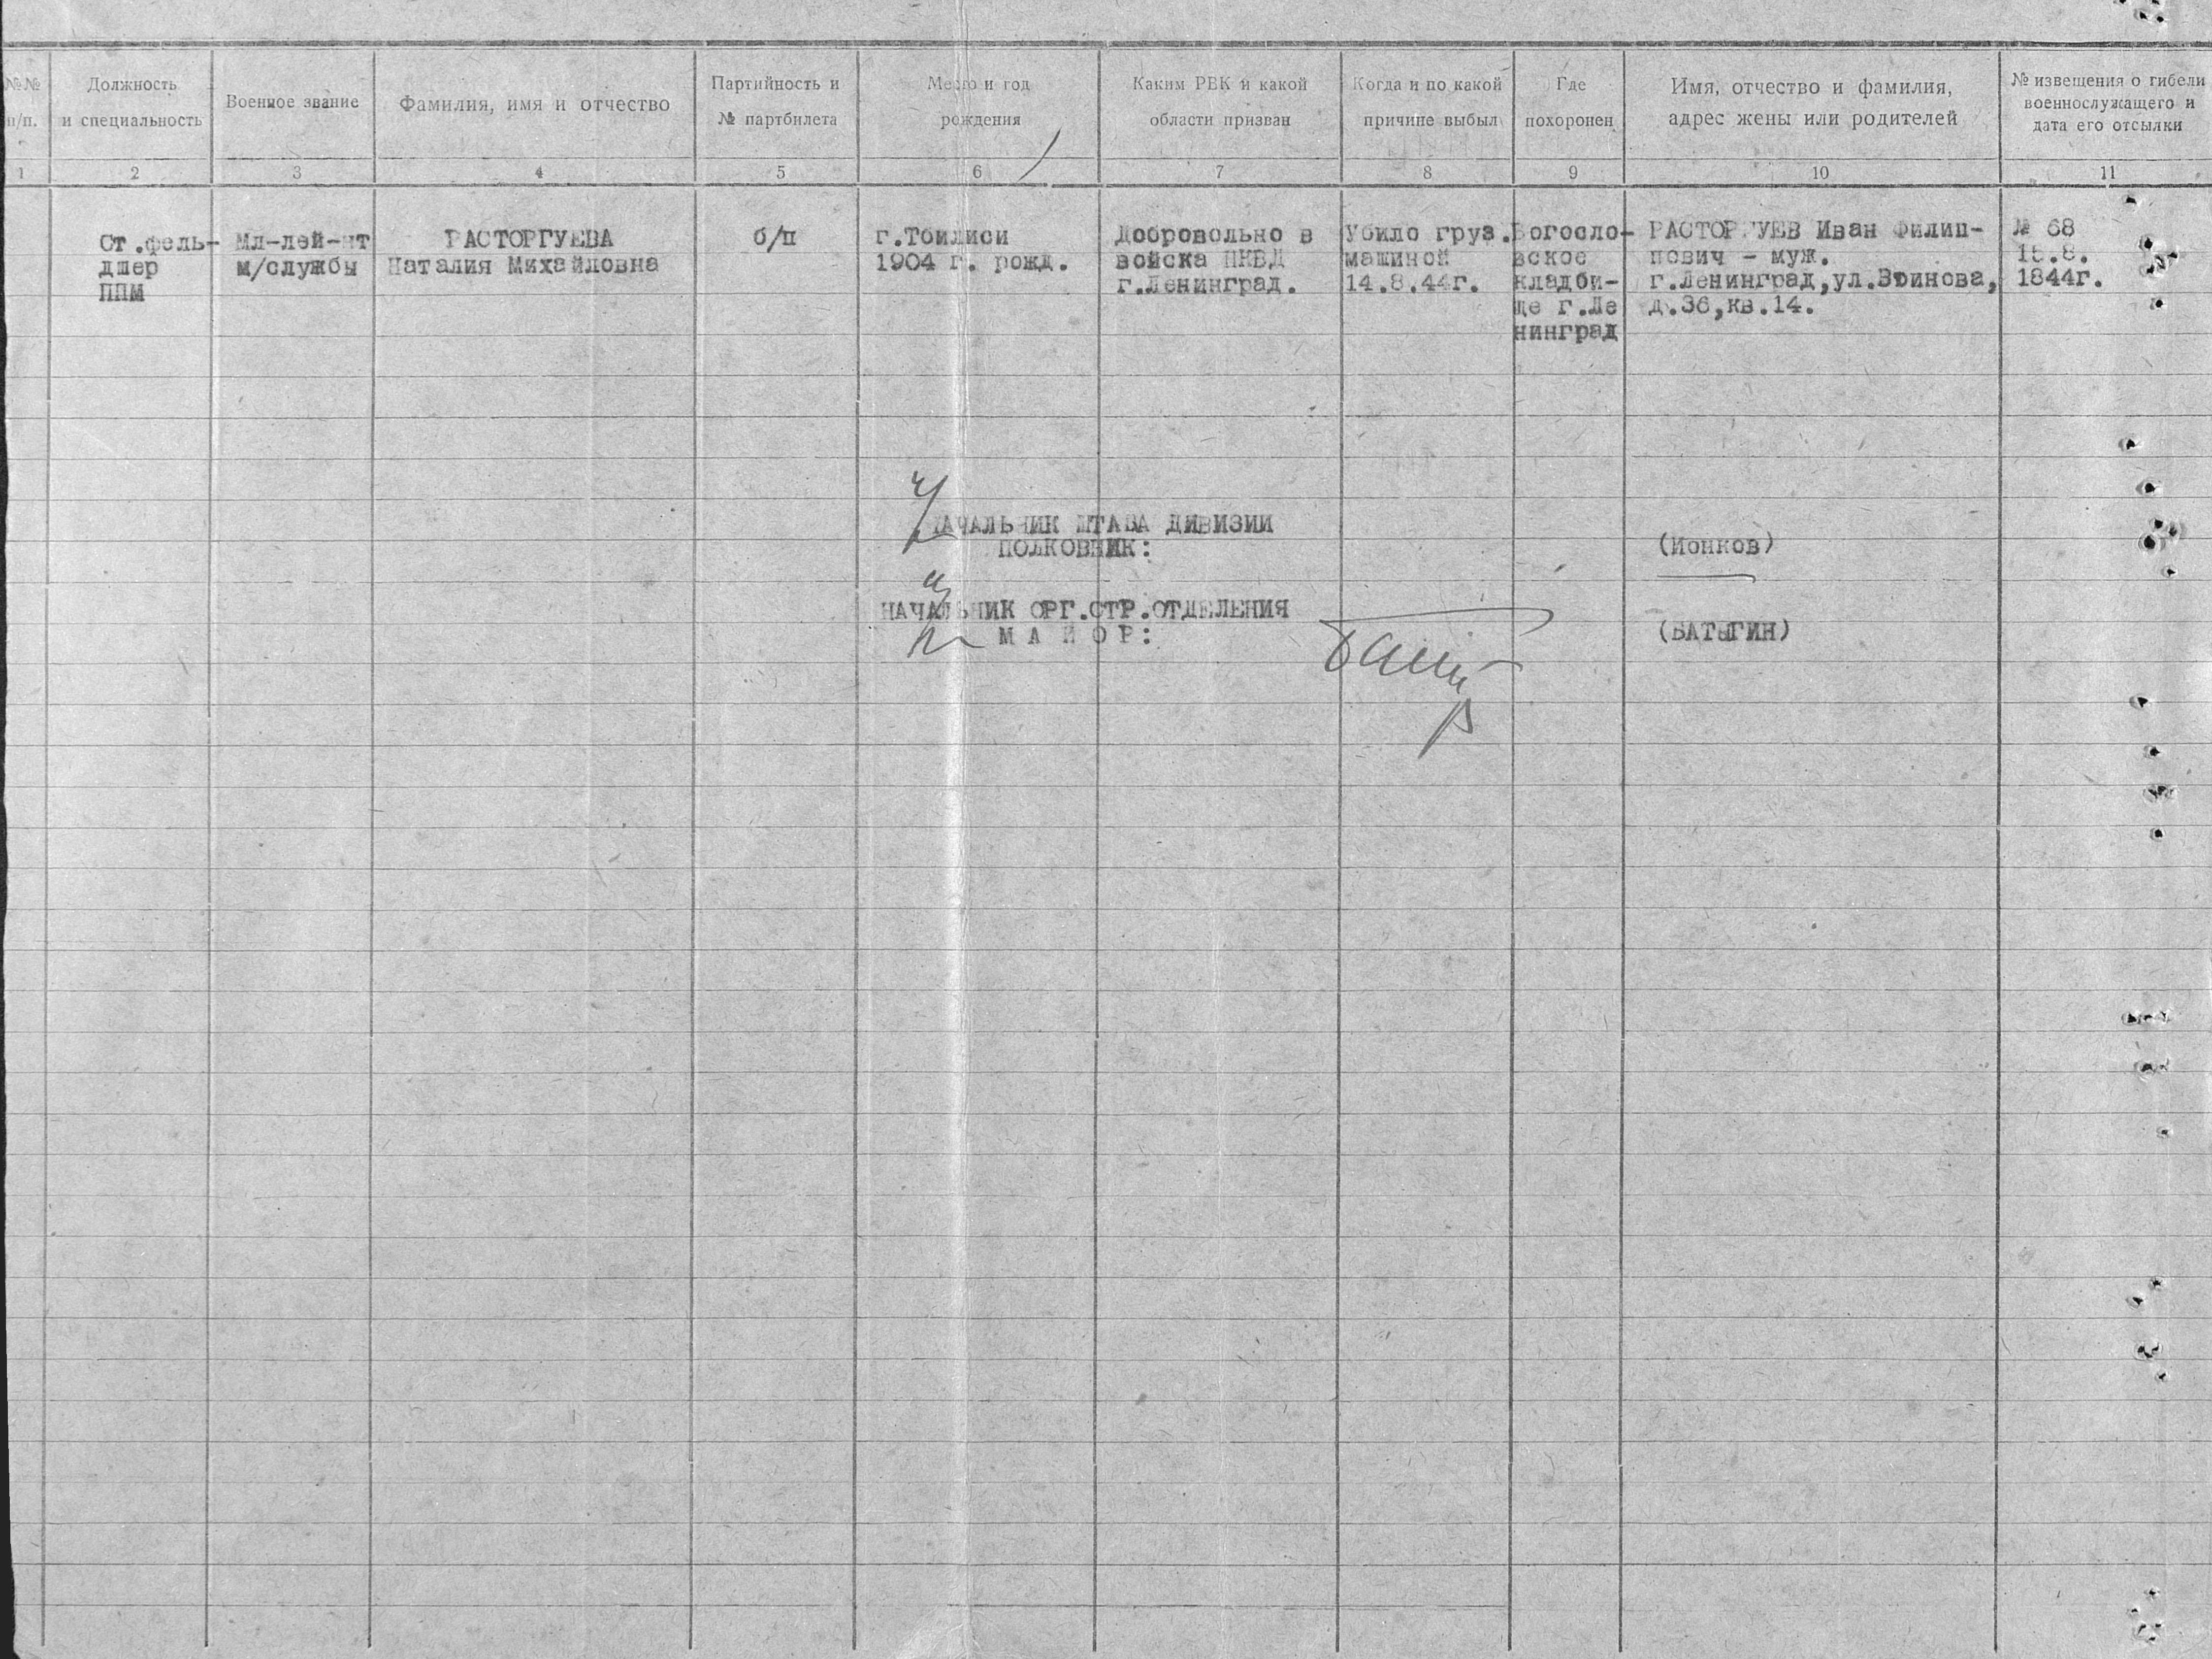 №№ п/п.
Должность и специальность
Военное звание
Фамилия, имя и отчество
Партийность и № партбилета
Место и год рождения
Каким РВК и какой области призван
Когда и по какой причине выбыл
Где похоронен
Имя, отчество и фамилия, адрес жены или родителей
№ извещения о гибели военнослужащего и дата его отсылки
1 2 3 4 5 6 7 8 9 10 11
Ст.фель-
дшер
ППМ
Мл-лей-нт
м/службы
РАСТОРГУЕВА
Наталия Михайловна
б/п
г.Тбилиси
1904 г. рожд.
Добровольно в
войска НКВД
г.Ленинград.
Убило груз.
машиной
14.8.44г.
Богосло-
вское
кладби-
ще г.Ле
нинград
РАСТОРГУЕВ Иван Филип-
пович - муж.
г.Ленинград,ул.
д.36,кв.14.
№ 68
15.8.
1844г.
НАЧАЛЬНИК ШТАБА ДИВИЗИИ
ПОЛКОВНИК:
(Ионков)
НАЧАЛЬНИК ОРГ.СТР.ОТДЕЛЕНИЯ
М А Й О Р:
(БАТЫГИН)